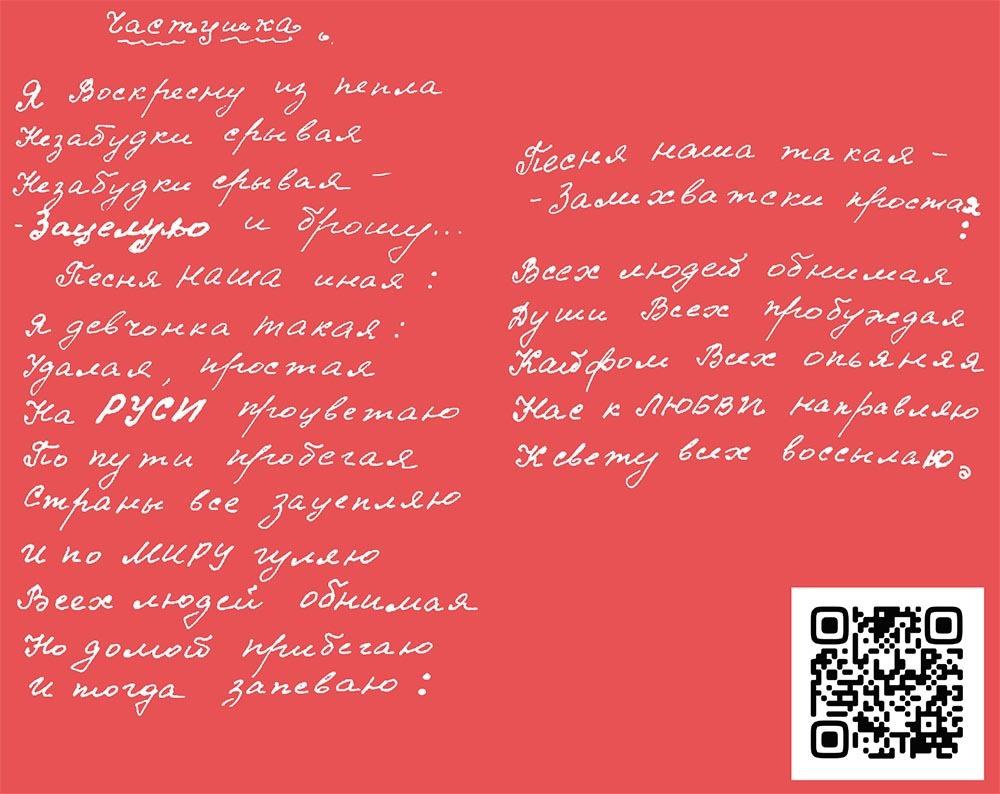 Частушка.
Я Воскресну из пепла
Незабудки срывая
Незабудки срывая –
- Зацелую и брошу...
Песня наша иная:
Я девчонка такая:
Удалая, простая
На РУСИ процветаю
По пути пробегая
Страны все зацепляю
И по МИРУ гуляю
Всех людей обнимая
Но домой прибегаю
И тогда запеваю:
Песня наша такая –
- Залихватски простая:
Всех людей обнимая
Души Всех пробуждая
Кайфом Всех опьяняя
Нас к ЛЮБВИ направляю
К свету всех воссылаю.